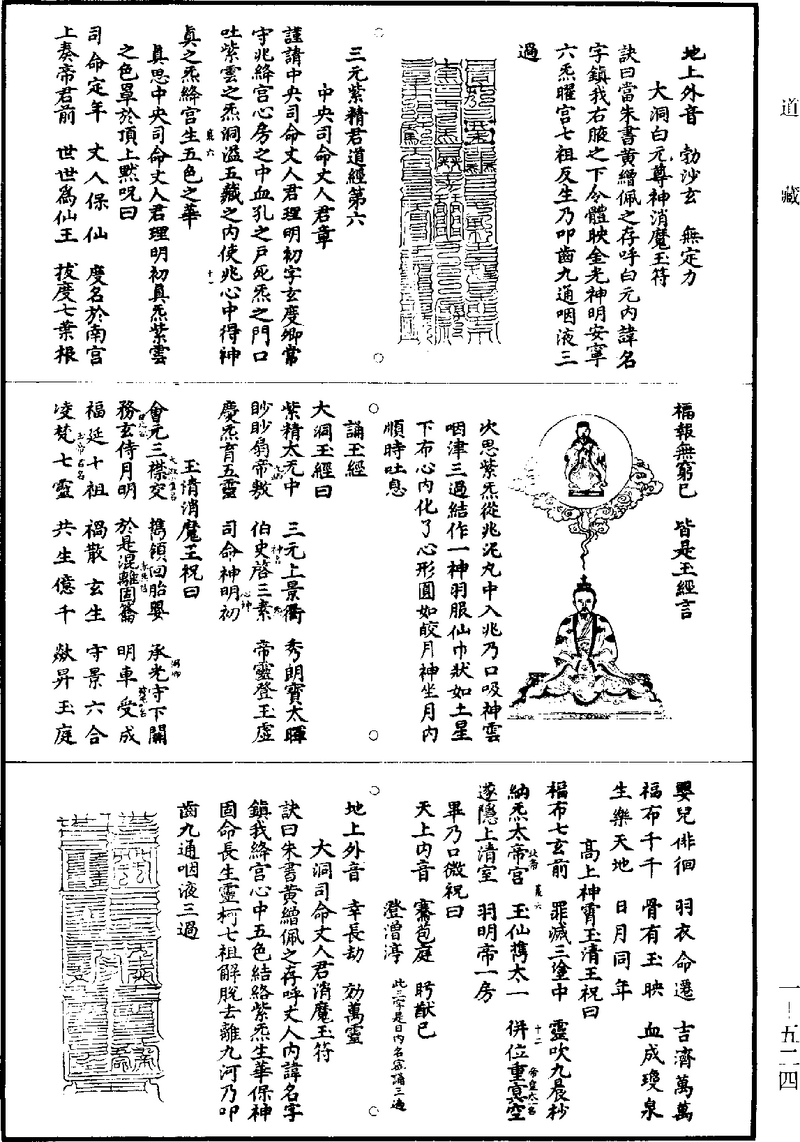 道藏
地上外音　勃沙玄　無定力
大洞白元尊神消魔玉符
訣曰當朱書黃繒佩之存呼白元內諱名
字鎮我右腋之下令體映金光神明安寧
六炁曜宮七祖反生乃叩齒九通咽液三
過
三元紫精君道經第六
中央司命丈人君章
謹請中央司命丈人君理明初字玄度卿常
守兆絳宮心房之中血孔之戶死炁之門口
吐紫雲之炁洞溢五藏之內使兆心中得神
真之炁絳宮生五色之華
真思中央司命丈人君理明初真炁紫雲
之色罩於頂上默呪曰
司命定年　丈人保仙　度名於南宮
上奏帝君前　世世為仙王　拔度七葉根
福報無窮已　皆是玉經言
次思紫炁從兆泥丸中入兆乃口吸神雲
咽津三過結作一神羽服仙巾狀如土星
下布心內化了心形圓如皎月神坐月內
順時吐息
誦玉經
大洞玉經曰
紫精太元中　三元上景衢　秀朗寶太暉
眇眇扇帝敷　伯史啓三素　帝靈登玉虛
慶炁育五靈　司命神明初
玉清消魔王祝曰
會元三襟交　雋領回胎嬰　承光守下關
務玄侍月明　於是混離固籥　明車受成
福延十祖　禍散玄生　守景六合
凌梵七靈　共生億千　歘昇玉庭
嬰兒徘徊　羽衣命還　吉濟萬萬
福布千千　骨有玉映　血成瓊泉
生樂天地　日月同年
高上神霄玉清王祝曰
福布七玄前　罪滅三塗中　靈吹九晨杪
納炁太帝宮　玉仙雋太一　併位重冥空
遂隱上清室　羽明帝一房
畢乃口微祝曰
天上內音　騫苞庭　眄猷已
澄瀯渟　此三字是日內名密誦三過
地上外音　幸長劫　劾萬靈
大洞司命丈人君消魔玉符
訣曰朱書黃繒佩之存呼丈人內諱名字
鎮我絳宮心中五色結絡紫炁生華保神
固命長生靈柯七祖解脫去離九河乃叩
齒九通咽液三過
一—五二四